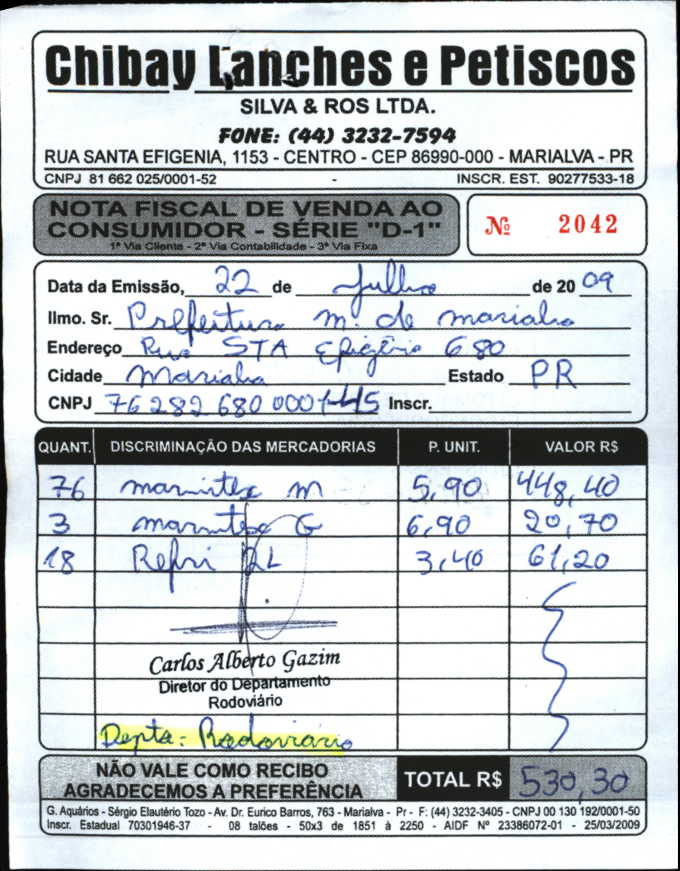 Chibay Lanches e Petiscos
SILVA & ROS LTDA.
FONE: (44) 3232-7594
RUA SANTA EFIGENIA, 1153 - CENTRO - CEP 86990-000 - MARIALVA - PR
CNPJ 81 662 025/0001-52 - INSCR. EST. 90277533-18
NOTA FISCAL DE VENDA AO
CONSUMIDOR - SÉRIE "D-1"
1ª Via Cliente - 2ª Via Contabilidade - 3ª Via Fixa
Nº 2042
Data da Emissão, 22 de Julho de 2009
Ilmo. Sr. Prefeitura M. de Marialva
Endereço Rua STA Efigênia 680
Cidade Marialva Estado PR
CNPJ 76 282 680 0001-45 Inscr.
QUANT. DISCRIMINAÇÃO DAS MERCADORIAS P. UNIT. VALOR R$
76 marmitex M 5,90 448,40
3 marmitex G 6,90 20,70
18 Refri 2L 3,40 61,20
Carlos Alberto Gazim
Diretor do Departamento
Rodoviário
Depto: Rodoviário
NÃO VALE COMO RECIBO
AGRADECEMOS A PREFERÊNCIA
TOTAL R$ 530,30
G. Aquários - Sérgio Elautério Tozo - Av. Dr. Eurico Barros, 763 - Marialva - Pr - F: (44) 3232-3405 - CNPJ 00 130 192/0001-50
Inscr. Estadual 70301946-37 - 08 talões - 50x3 de 1851 à 2250 - AIDF Nº 23386072-01 - 25/03/2009